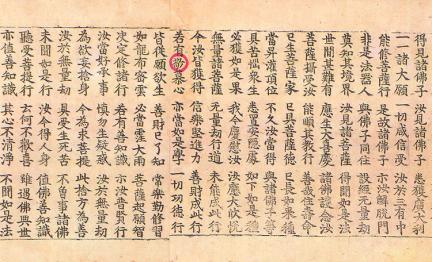 得見諸佛子 汝見諸佛子 悉獲廣大利
一一諸大願 一切咸信受 汝於三有中
能修菩薩行 是故諸佛子 示汝解脫門
非是法器人 與佛子同住 設經無量劫
莫知其境界 汝見諸菩薩 得聞如是法
世間甚難有 應生大喜慶 諸佛護念汝
菩薩攝受汝 能順其教行 善哉住壽命
已生菩薩家 已具菩薩德 已長如來種
當昇灌頂位 不久汝當得 與諸佛子等
具苦惱衆生 悉置安隱處 如下如是種
必獲如是果 我今慶慰汝 汝應大欣悅
無量諸菩薩 無量劫行道 未能成此行
今汝皆獲得 信樂堅進力 善財成此行
若有敬慕心 亦當如是學 一切功德行
皆從願欲生 善財已了知 常樂勤修習
如龍布密雲 必當霔大雨 菩薩起願智
決定修諸行 若有善知識 示汝普賢行
汝當好承事 慎勿生疑惑 汝於無量劫
為欲妄捨身 今為求菩提 此捨方為善
汝於無量劫 具受生死苦 不曾事諸佛
未聞如是行 汝今得人身 值佛善知識
聽受菩提行 云何不歡喜 雖遇佛興世
亦值善知識 其心不清淨 不聞如是法